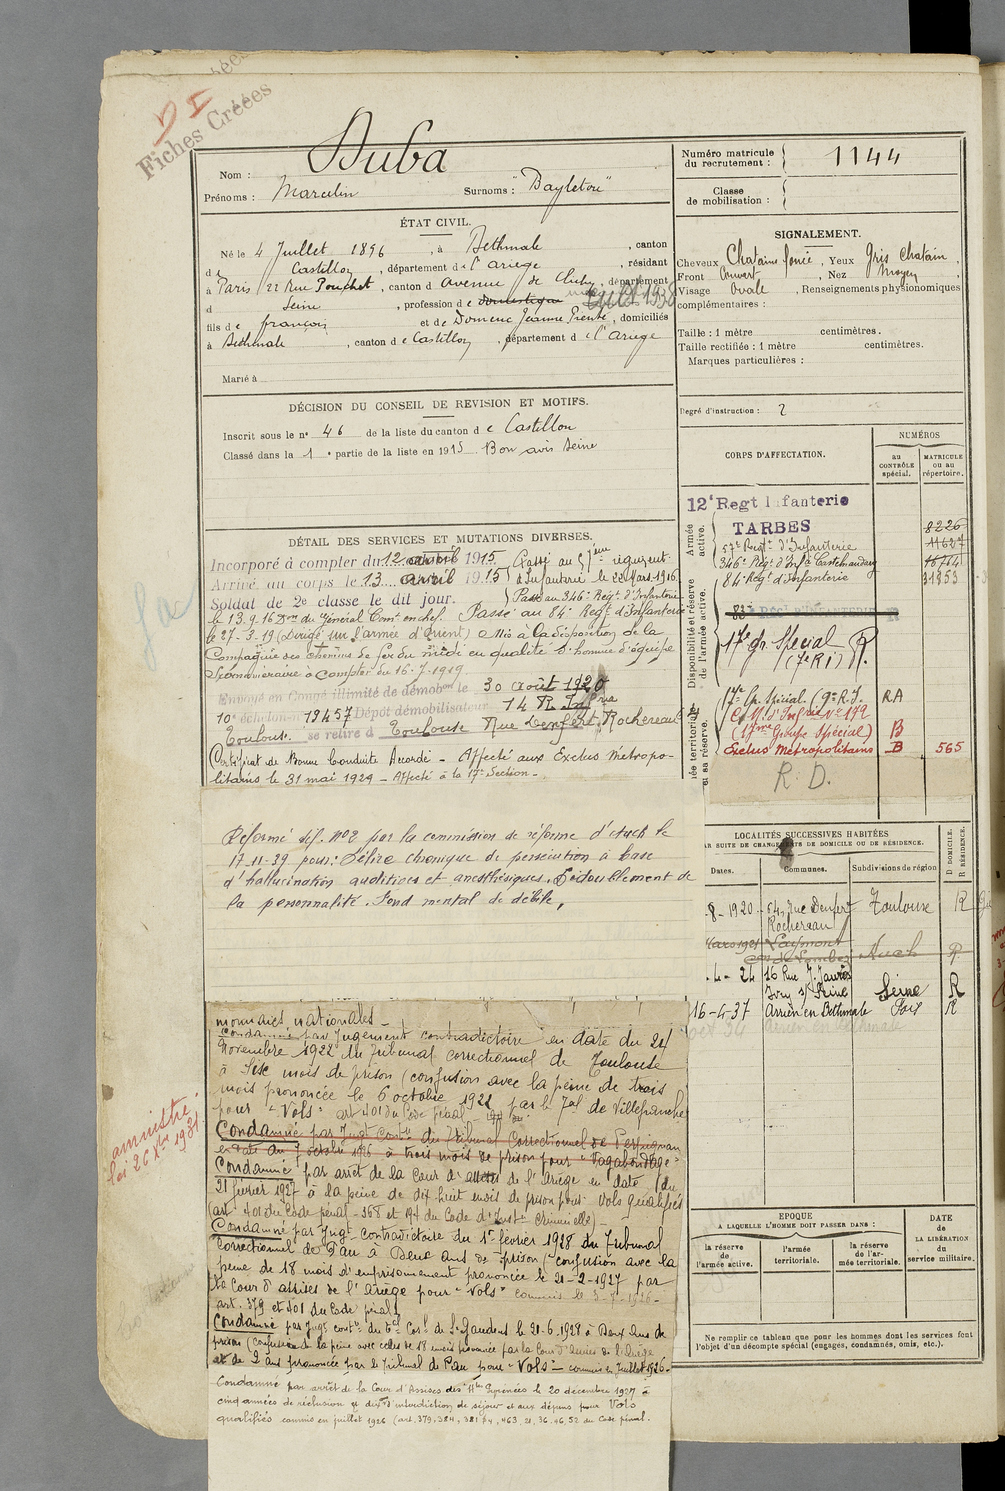 Fiches Créées
Duba
Nom :
Prénoms : Marcelin Surnoms : "Bayletou"
Numéro matricule du recrutement : 1144
Classe de mobilisation :
ÉTAT CIVIL.
Né le 4 Juillet 1896, à Bethmale, canton
de Castillon, département de l'Ariège, résidant
à Paris, 22 Rue Pouchet, canton d avenue de Clichy, département
d Seine, profession de domestique
fils de françois et de Domenc Jeanne, domiciliés
à Bethmale, canton de Castillon, département de l'Ariège
Marié à
SIGNALEMENT.
Cheveux Chatains foncé, Yeux Gris Chatain,
Front Couvert, Nez Moyen
Visage Ovale, Renseignements physionomiques
complémentaires :
Taille : 1 mètre centimètres.
Taille rectifiée : 1 mètre centimètres.
Marques particulières :
Degré d'instruction : 2
DÉCISION DU CONSEIL DE REVISION ET MOTIFS.
Inscrit sous le n° 46 de la liste du canton de Castillon
Classé dans la 1e partie de la liste en 1915. Bon avis Seine
CORPS D'AFFECTATION.
NUMÉROS
au CONTRÔLE spécial.
MATRICULE ou au répertoire.
Armée active.
12e Regt Infanterie
TARBES 8226
57e Regt d'Infanterie 11627
346e Regt d'Infie Castelnaudary
84e Regt d'Infanterie
Disponibilité et réserve de l'armée active.
17e gr. Spécial
(7e R I)
17e Gr. Spécial (9e R.I. RA
(17me Groupe Spécial) B
Exclus Métropolitains B 565
R. D.
DÉTAIL DES SERVICES ET MUTATIONS DIVERSES.
Incorporé à compter du 12 avril 1915
Arrivé au corps le 13 avril 1915
Soldat de 2e classe le dit jour.
Passé au 57ème régiment
d'Infanterie le 22 Mars 1916
Passé au 346e Regt d'Infanterie
le 13.9.16 Don du Général Comt en chef. Passé au 84e Regt d'Infanterie
le 27-3-19 (Dirigé sur l'armée d'Orient) Mis à la disposition de la
Compagnie des chemins de fer du midi en qualité d'homme d'équipe
à compter du 16-7-1919
Envoyé en Congé illimité de démobon le 30 août 1920
10e échelon n° 13457 Dépôt démobilisateur 14 R Infrie
Toulouse. se retire à Toulouse Rue Denfert, Rochereau
Certificat de Bonne Conduite Accordé - Affecté aux Exclus Métropo-
litains le 31 mai 1929 - Affecté à la 17e Section -
Réformé déf. n°2 par la commission de réforme d'Auch le
17-11-39 pour : Délire chronique de persécution à base
d'hallucination auditives et anesthésiques. Dédoublement de
la personnalité. Fond mental de débile.
LOCALITÉS SUCCESSIVES HABITÉES
PAR SUITE DE CHANGEMENTS DE DOMICILE OU DE RÉSIDENCE.
Dates. Communes. Subdivisions de région
D DOMICILE. R RÉSIDENCE.
-8-1920 54, rue Denfert Rochereau Toulouse R
Mars 1921 Laymont con de Lombez Auch R
-4-24 16 Rue J. Jaurès Ivry s/ Seine Seine R
16-4-37 Arrien en Bethmale Foix R
monnaies nationales -
Condamné par Jugement contradictoire en date du 24
Novembre 1922 du Tribunal correctionnel de Toulouse
à Six mois de prison (confusion avec la peine de trois
mois prononcée le 6 octobre 1922 par le Tal de Villefranche
pour "Vols" art 401 du Code pénal
Condamné par Jugt contre du Tribunal Correctionnel de Perpignan
en date du 7 octobre 1926 à trois mois de prison pour "Vagabondage"
Condamné par arrêt de la Cour d'assises de l'Ariège en date du
21 février 1927 à la peine de dix huit mois de prison pour Vols qualifiés
(art. 401 du Code pénal - 368 et 194 du Code d'Instn Criminelle) -
Condamné par Jugt contradictoire du 1er février 1928 du Tribunal
Correctionnel de Pau à Deux ans de prison (confusion avec la
peine de 18 mois d'emprisonnement prononcée le 21-2-1927 par
la Cour d'assises de l'Ariège pour "Vols" commis le 3-7-1926 -
art. 379 et 401 du Code pénal)
Condamné par Jugt contre du Tal Corl de St Gaudens le 21-6-1928 à Deux Ans de
prison (confusion de la peine avec celles de 18 mois prononcée par la Cour d'assises de l'Ariège
et de 2 ans prononcée par le Tribunal de Pau pour "Vols" - commis en Juillet 1926 -
Condamné par arrêt de la Cour d'Assises des Htes Pyrénées le 20 décembre 1927 à
cinq années de réclusion et dix ans d'interdiction de séjour et aux dépens pour Vols
qualifiés commis en juillet 1926 (art. 379, 384, 381 § 4, 463, 21, 36, 46, 52 du Code pénal.
amnistié.
loi 26 Xbre 1931
EPOQUE
A LAQUELLE L'HOMME DOIT PASSER DANS :
la réserve de l'armée active.
l'armée territoriale.
la réserve de l'armée territoriale.
DATE de LA LIBÉRATION du service militaire.
Ne remplir ce tableau que pour les hommes dont les services font
l'objet d'un décompte spécial (engagés, condamnés, omis, etc.).